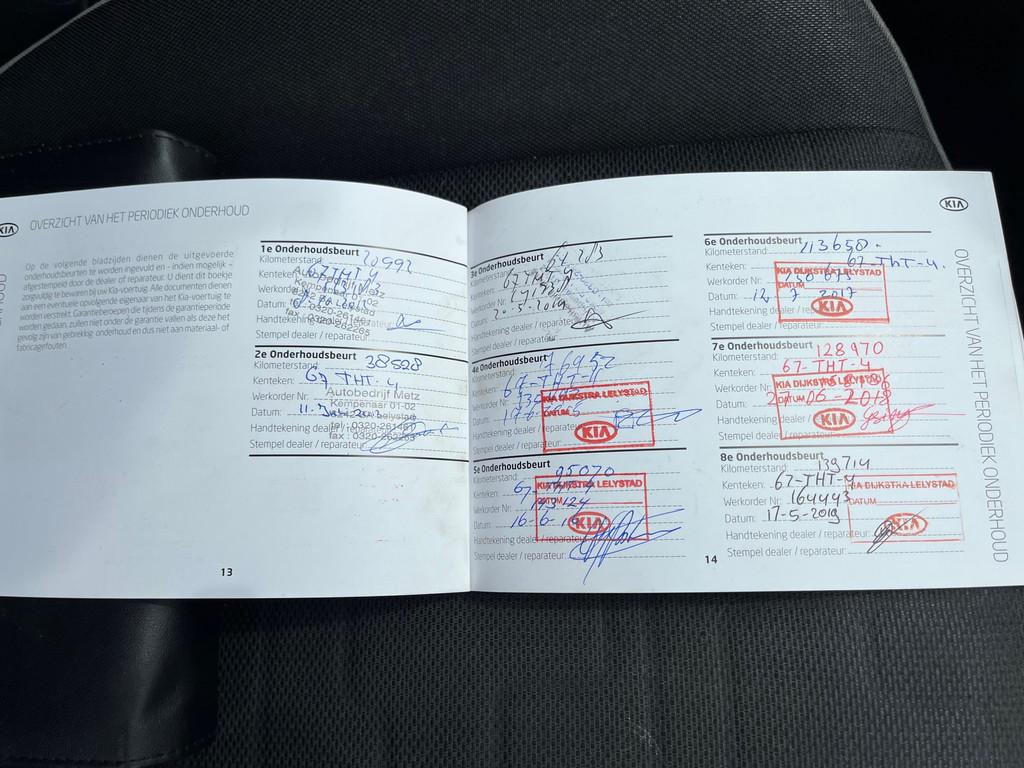 KIA OVERZICHT VAN HET PERIODIEK ONDERHOUD
Op de volgende bladzijden dienen de uitgevoerde
onderhoudsbeurten te worden ingevuld en - indien mogelijk -
afgestempeld door de dealer of reparateur. U dient dit boekje
zorgvuldig te bewaren bij uw Kia-voertuig. Alle documenten dienen
aan een eventuele opvolgende eigenaar van het Kia-voertuig te
worden verstrekt. Garantieberoepen die tijdens de garantieperiode
worden gedaan, zullen niet onder de garantie vallen als deze het
gevolg zijn van gebrekkig onderhoud en dus niet aan materiaal- of
fabricagefouten.
1e Onderhoudsbeurt
Kilometerstand: 20992
Kenteken: 67-THT-4
Werkorder
Datum:
Handtekening dealer / reparateur:
Stempel dealer / reparateur:
Autobedrijf Metz
Kempenaar 01-02
tel : 0320-261461
fax : 0320-262265
2e Onderhoudsbeurt
Kilometerstand: 38528
Kenteken: 67-THT-4
Werkorder Nr:
Datum: 11-
Handtekening dealer / reparateur:
Stempel dealer / reparateur:
Autobedrijf Metz
Kempenaar 01-02
Lelystad
tel : 0320-261461
fax : 0320-262265
13
3e Onderhoudsbeurt
Kilometerstand:
Kenteken: 67-THT-4
Werkorder
Datum: 20-5-2014
Handtekening dealer / reparateur:
Stempel dealer / reparateur:
4e Onderhoudsbeurt
Kilometerstand: 76952
Kenteken: 67-THT-4
Werkorder Nr:
Datum: 17-6-
Handtekening dealer / reparateur:
Stempel dealer / reparateur:
KIA DIJKSTRA LELYSTAD
DATUM
KIA
5e Onderhoudsbeurt
Kilometerstand: 95070
Kenteken: 67-
Werkorder Nr:
Datum: 16-6-16
Handtekening dealer / reparateur:
Stempel dealer / reparateur:
KIA DIJKSTRA LELYSTAD
DATUM
KIA
KIA
6e Onderhoudsbeurt
Kilometerstand: 113650.
Kenteken: 67-THT-4.
Werkorder Nr:
Datum: 12 7 2017
Handtekening dealer / reparateur:
Stempel dealer / reparateur:
KIA DIJKSTRA LELYSTAD
KIA
7e Onderhoudsbeurt
Kilometerstand: 128970
Kenteken: 67-THT-4
Werkorder Nr:
Datum: 27-06-2018
Handtekening dealer / reparateur:
Stempel dealer / reparateur:
KIA DIJKSTRA LELYSTAD
DATUM
KIA
8e Onderhoudsbeurt
Kilometerstand: 139714
Kenteken: 67-THT-4
Werkorder Nr: 164443
Datum: 17-5-2019
Handtekening dealer / reparateur:
Stempel dealer / reparateur:
KIA DIJKSTRA LELYSTAD
DATUM
KIA
14
OVERZICHT VAN HET PERIODIEK ONDERHOUD